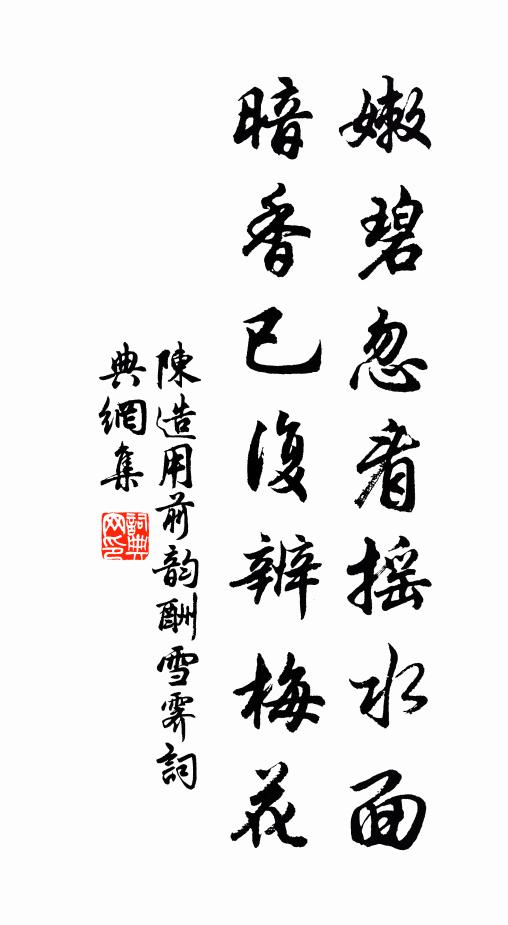 嫩碧忽看搖水面
暗香已復辨梅花
陳造用前韵酬雪霽詞
典網集
詞典網印